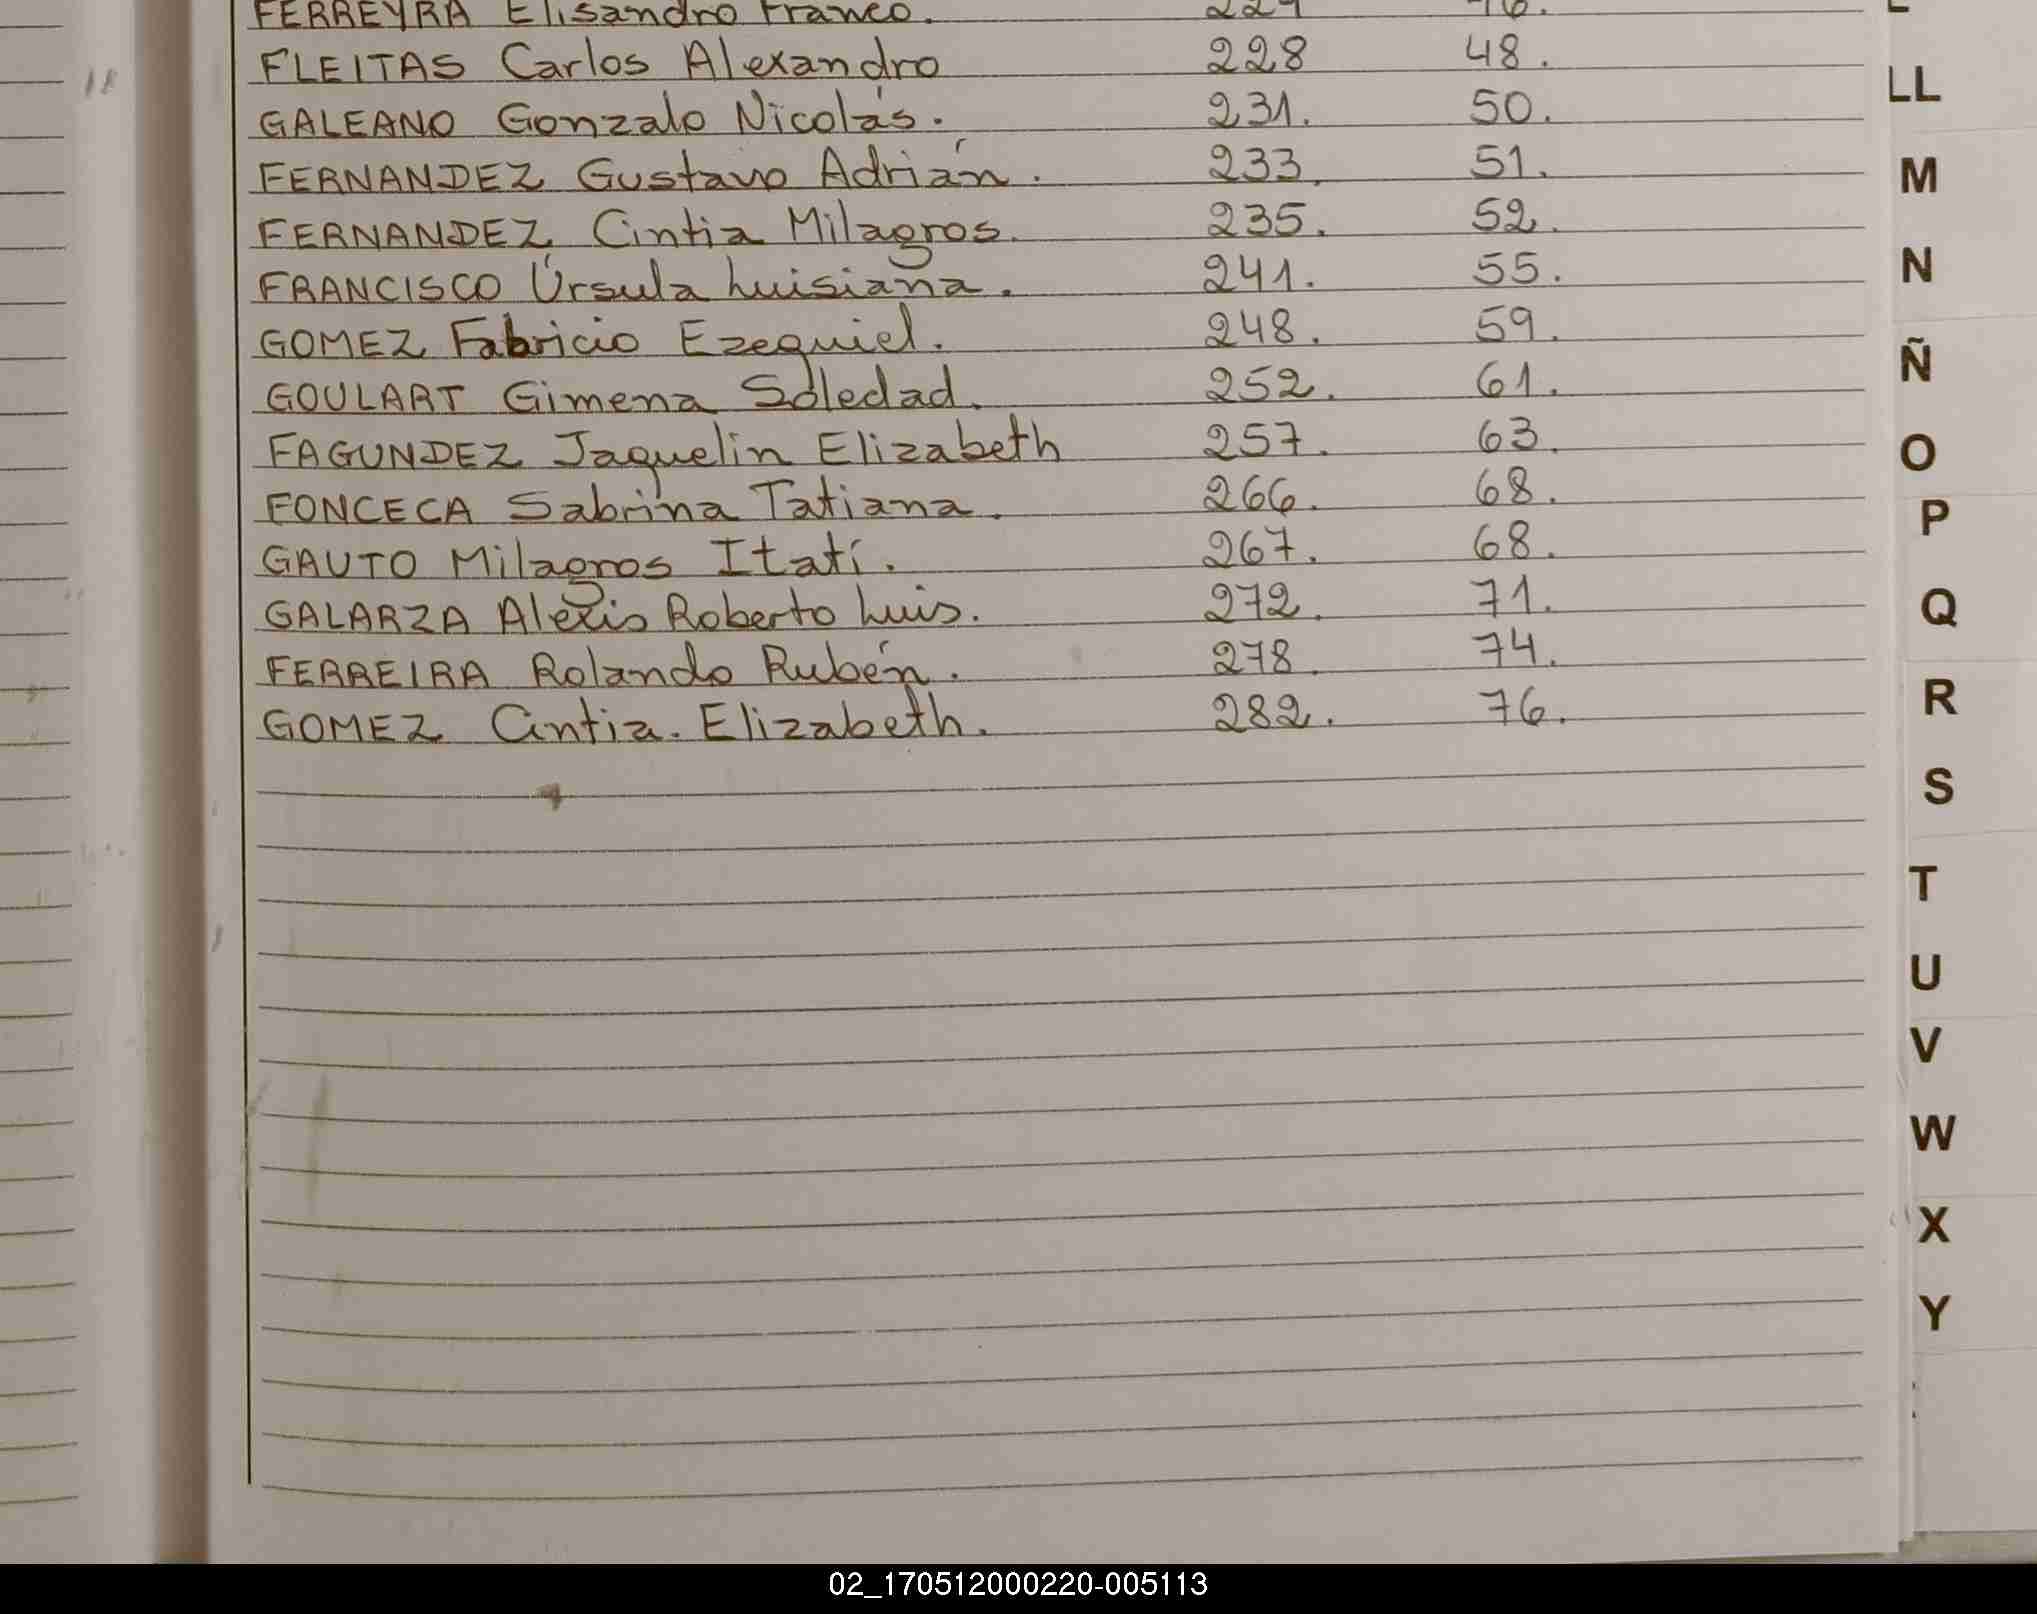 FERREYRA Elisandro Franco.
FLEITAS Carlos Alexandro 228 48.
GALEANO Gonzalo Nicolás. 231. 50.
FERNANDEZ Gustavo Adrián. 233. 51.
FERNANDEZ Cintia Milagros. 235. 52.
FRANCISCO Úrsula Luisiana. 241. 55.
GOMEZ Fabricio Ezequiel. 248. 59.
GOULART Gimena Soledad. 252. 61.
FAGUNDEZ Jaquelin Elizabeth 257. 63.
FONCECA Sabrina Tatiana. 266. 68.
GAUTO Milagros Itatí. 267. 68.
GALARZA Alexis Roberto Luis. 272. 71.
FERREIRA Rolando Rubén. 278. 74.
GOMEZ Cintia. Elizabeth. 282. 76.
LL
M
N
Ñ
O
P
Q
R
S
T
U
V
W
X
Y
02_170512000220-005113